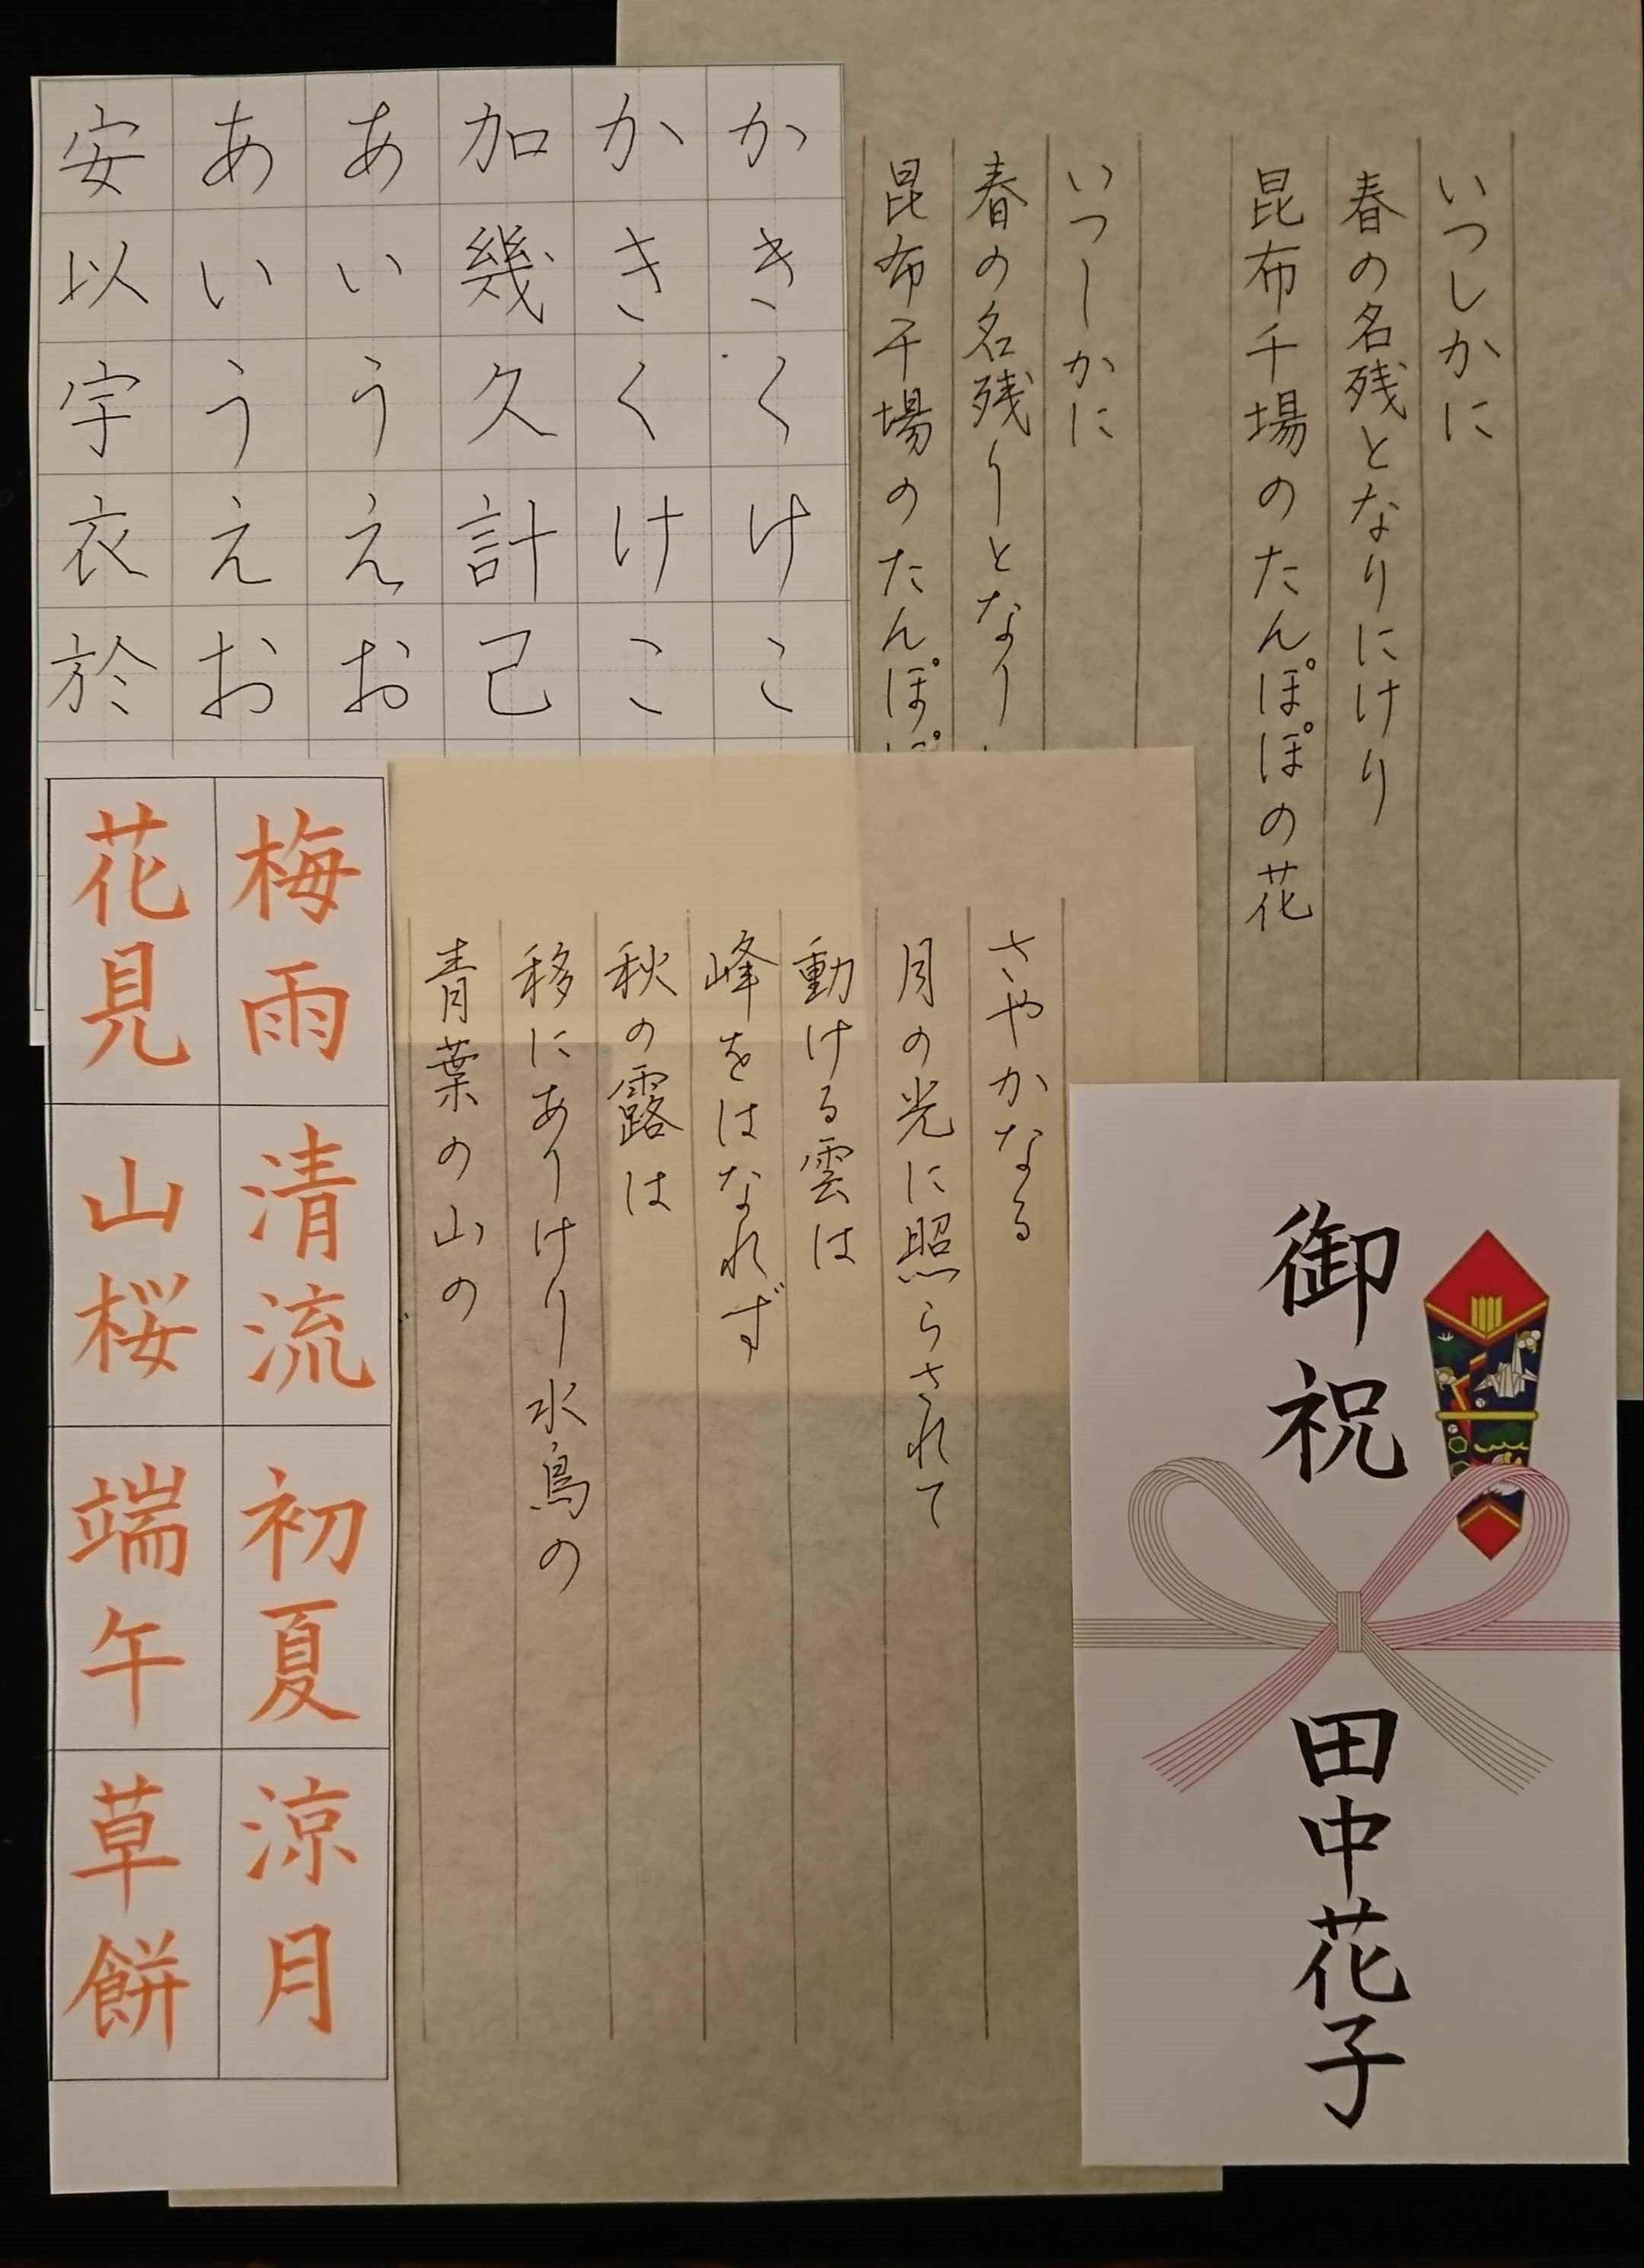 いつしかに
春の名残となりにけり
昆布干場のたんぽぽの花
いつしかに
春の名残りとなり
昆布干場のたんぽぽ
かきくけこ
かきくけこ
加幾久計己
あいうえお
あいうえお
安以宇衣於
さやかなる
月の光に照らされて
動ける雲は
峰をはなれず
秋の露は
移にありけり水鳥の
青葉の山の
梅雨
清流
初夏
涼月
花見
山桜
端午
草餅
御祝
田中花子